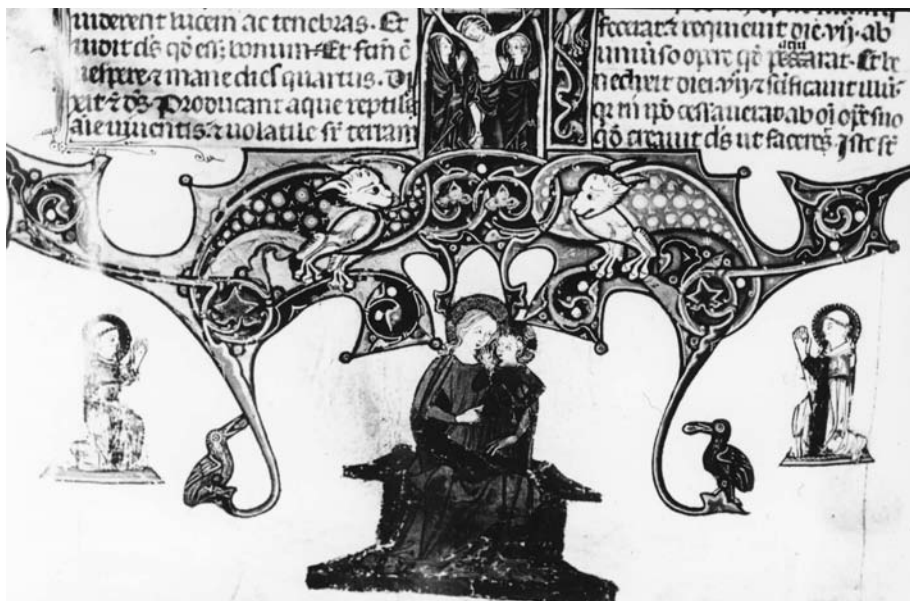 uiderent lucem ac tenebras. Et
uidit ds qd bonum. Et fcm e
uespere ⁊ mane dies quartus. Di
xit ⁊ ds. Producant aque reptile
aie uiuentis. ⁊ uolatile sr terram
fecerat. ⁊ requieuit die. vij. ab
uniuso opere qd Et be
nedixit diei. vij. ⁊ scificauit
qr in ipo cessauerat ab oi ope suo
qd creauit ds ut faceret. Iste st